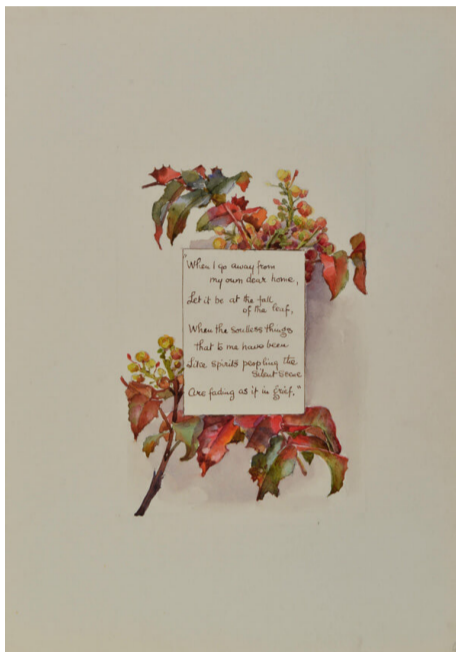 "When I go away from
my own dear home,
Let it be at the fall
of the leaf,
When the souless things
that to me have been
Like spirits peopling the
silent
Are fading as if in grief."